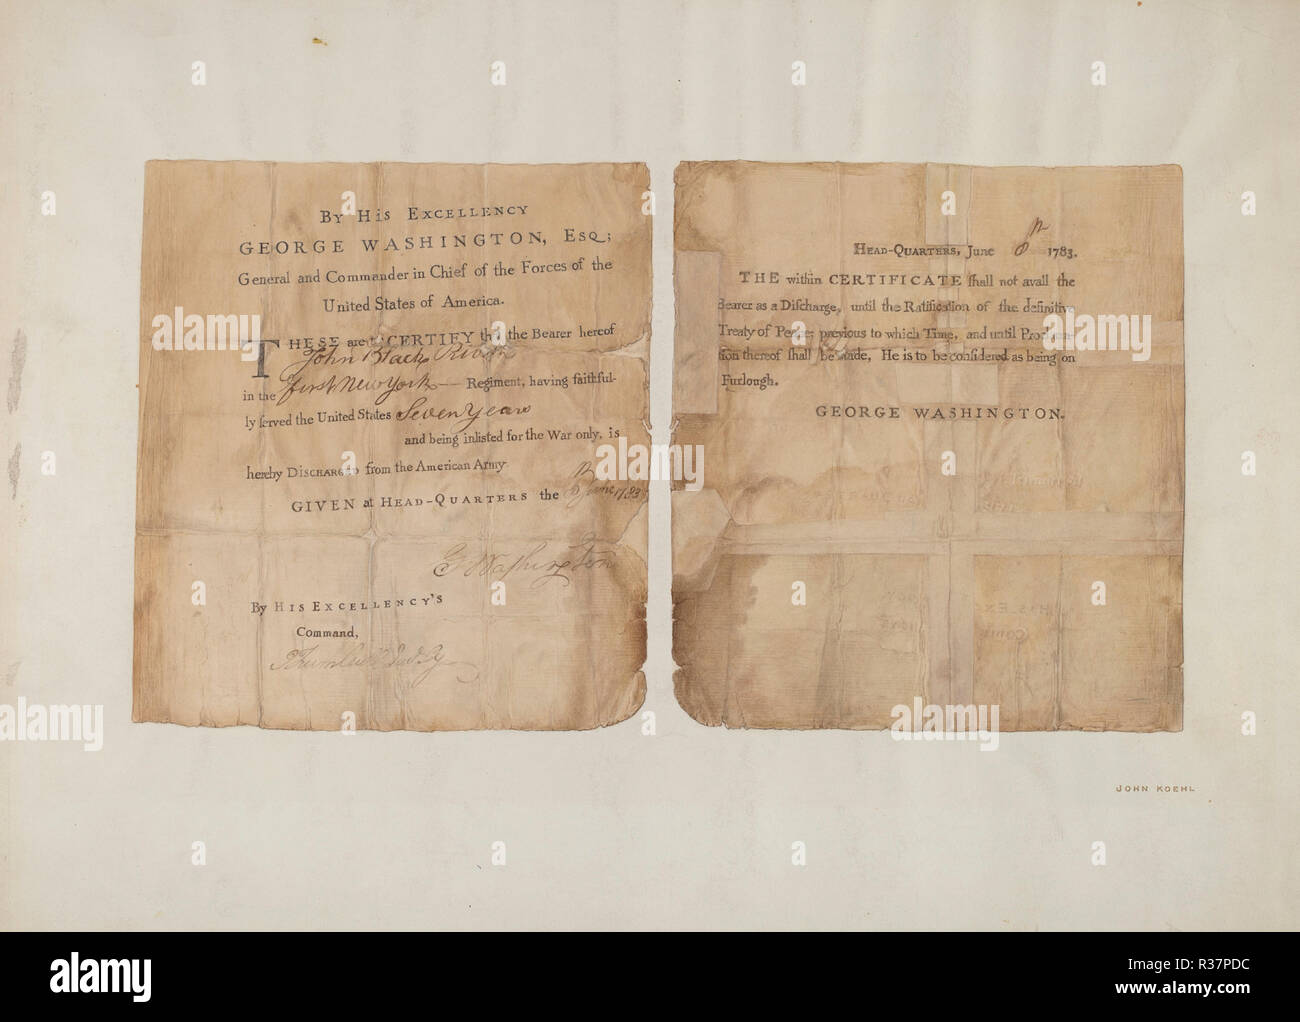 By His Excellency
GEORGE WASHINGTON, Esq;
General and Commander in Chief of the Forces of the
United States of America.
THESE are to CERTIFY that the Bearer hereof
John Black
in the First New York Regiment, having faithful-
ly ſerved the United States Seven Years
and being inliſted for the War only, is
hereby Discharged from the American Army
GIVEN at Head-Quarters the 8th June 1783
G Washington
By His Excellency's
Command,
Head-Quarters, June 8th 1783.
THE within CERTIFICATE ſhall not avail the
Bearer as a Diſcharge, until the Ratification of the definitive
Treaty of Peace; previous to which Time, and until Proclama-
tion thereof ſhall be made, He is to be conſidered as being on
Furlough.
GEORGE WASHINGTON.
JOHN KOEHL
alamy
Image ID: R37PDC
www.alamy.com